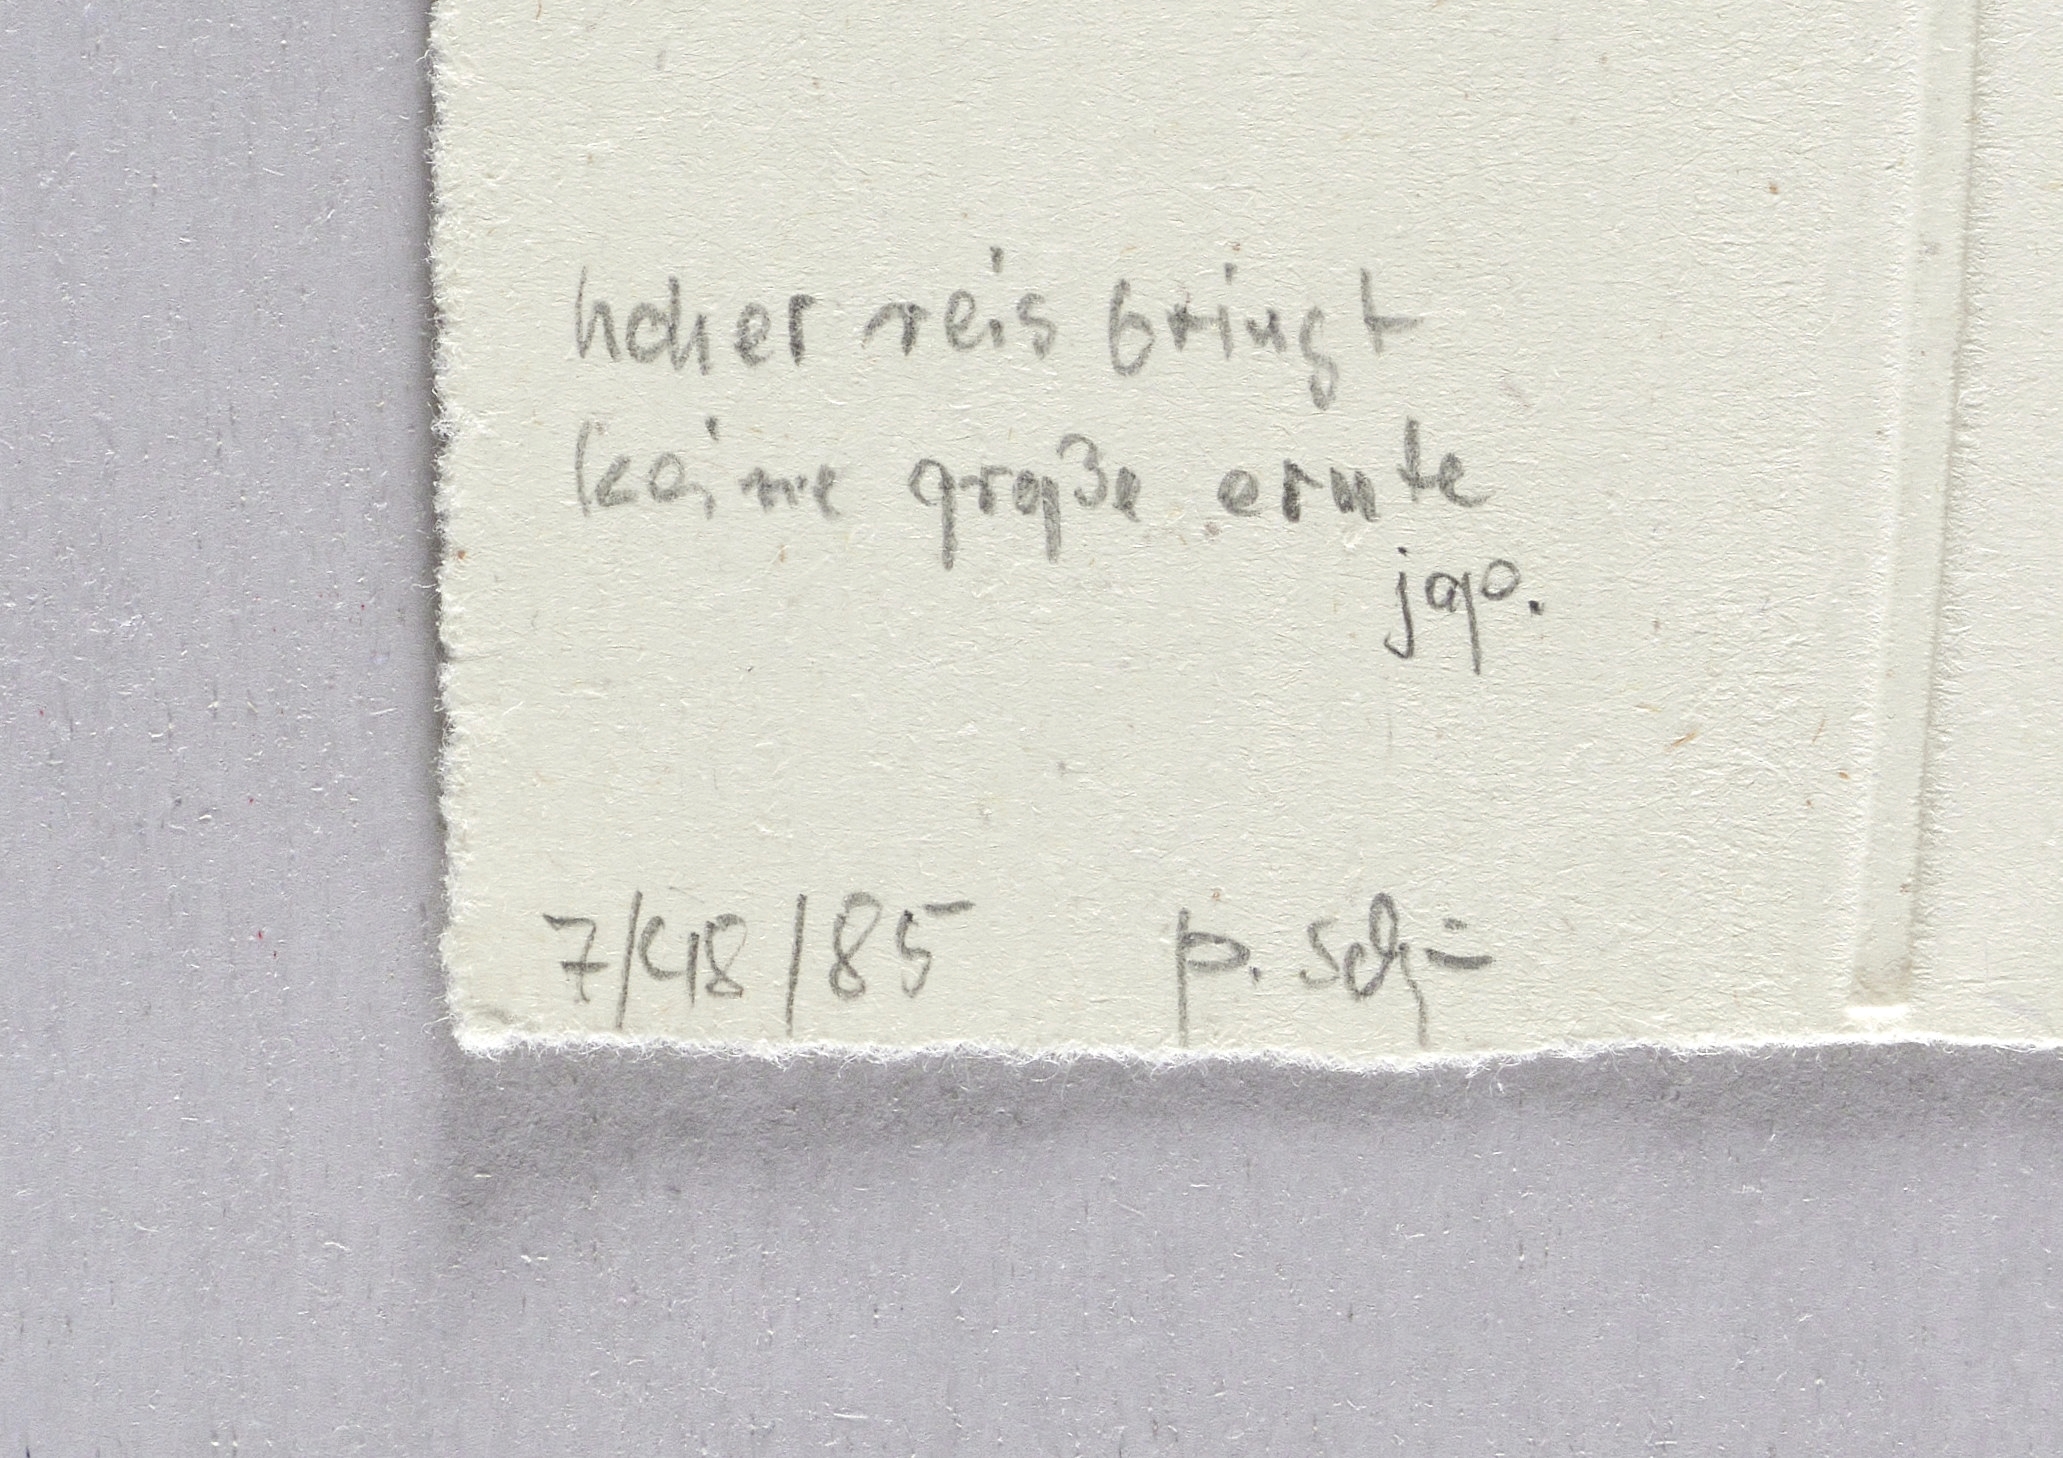 hoher reis bringt
keine große ernte
jap.
7/48/85 p. sch-